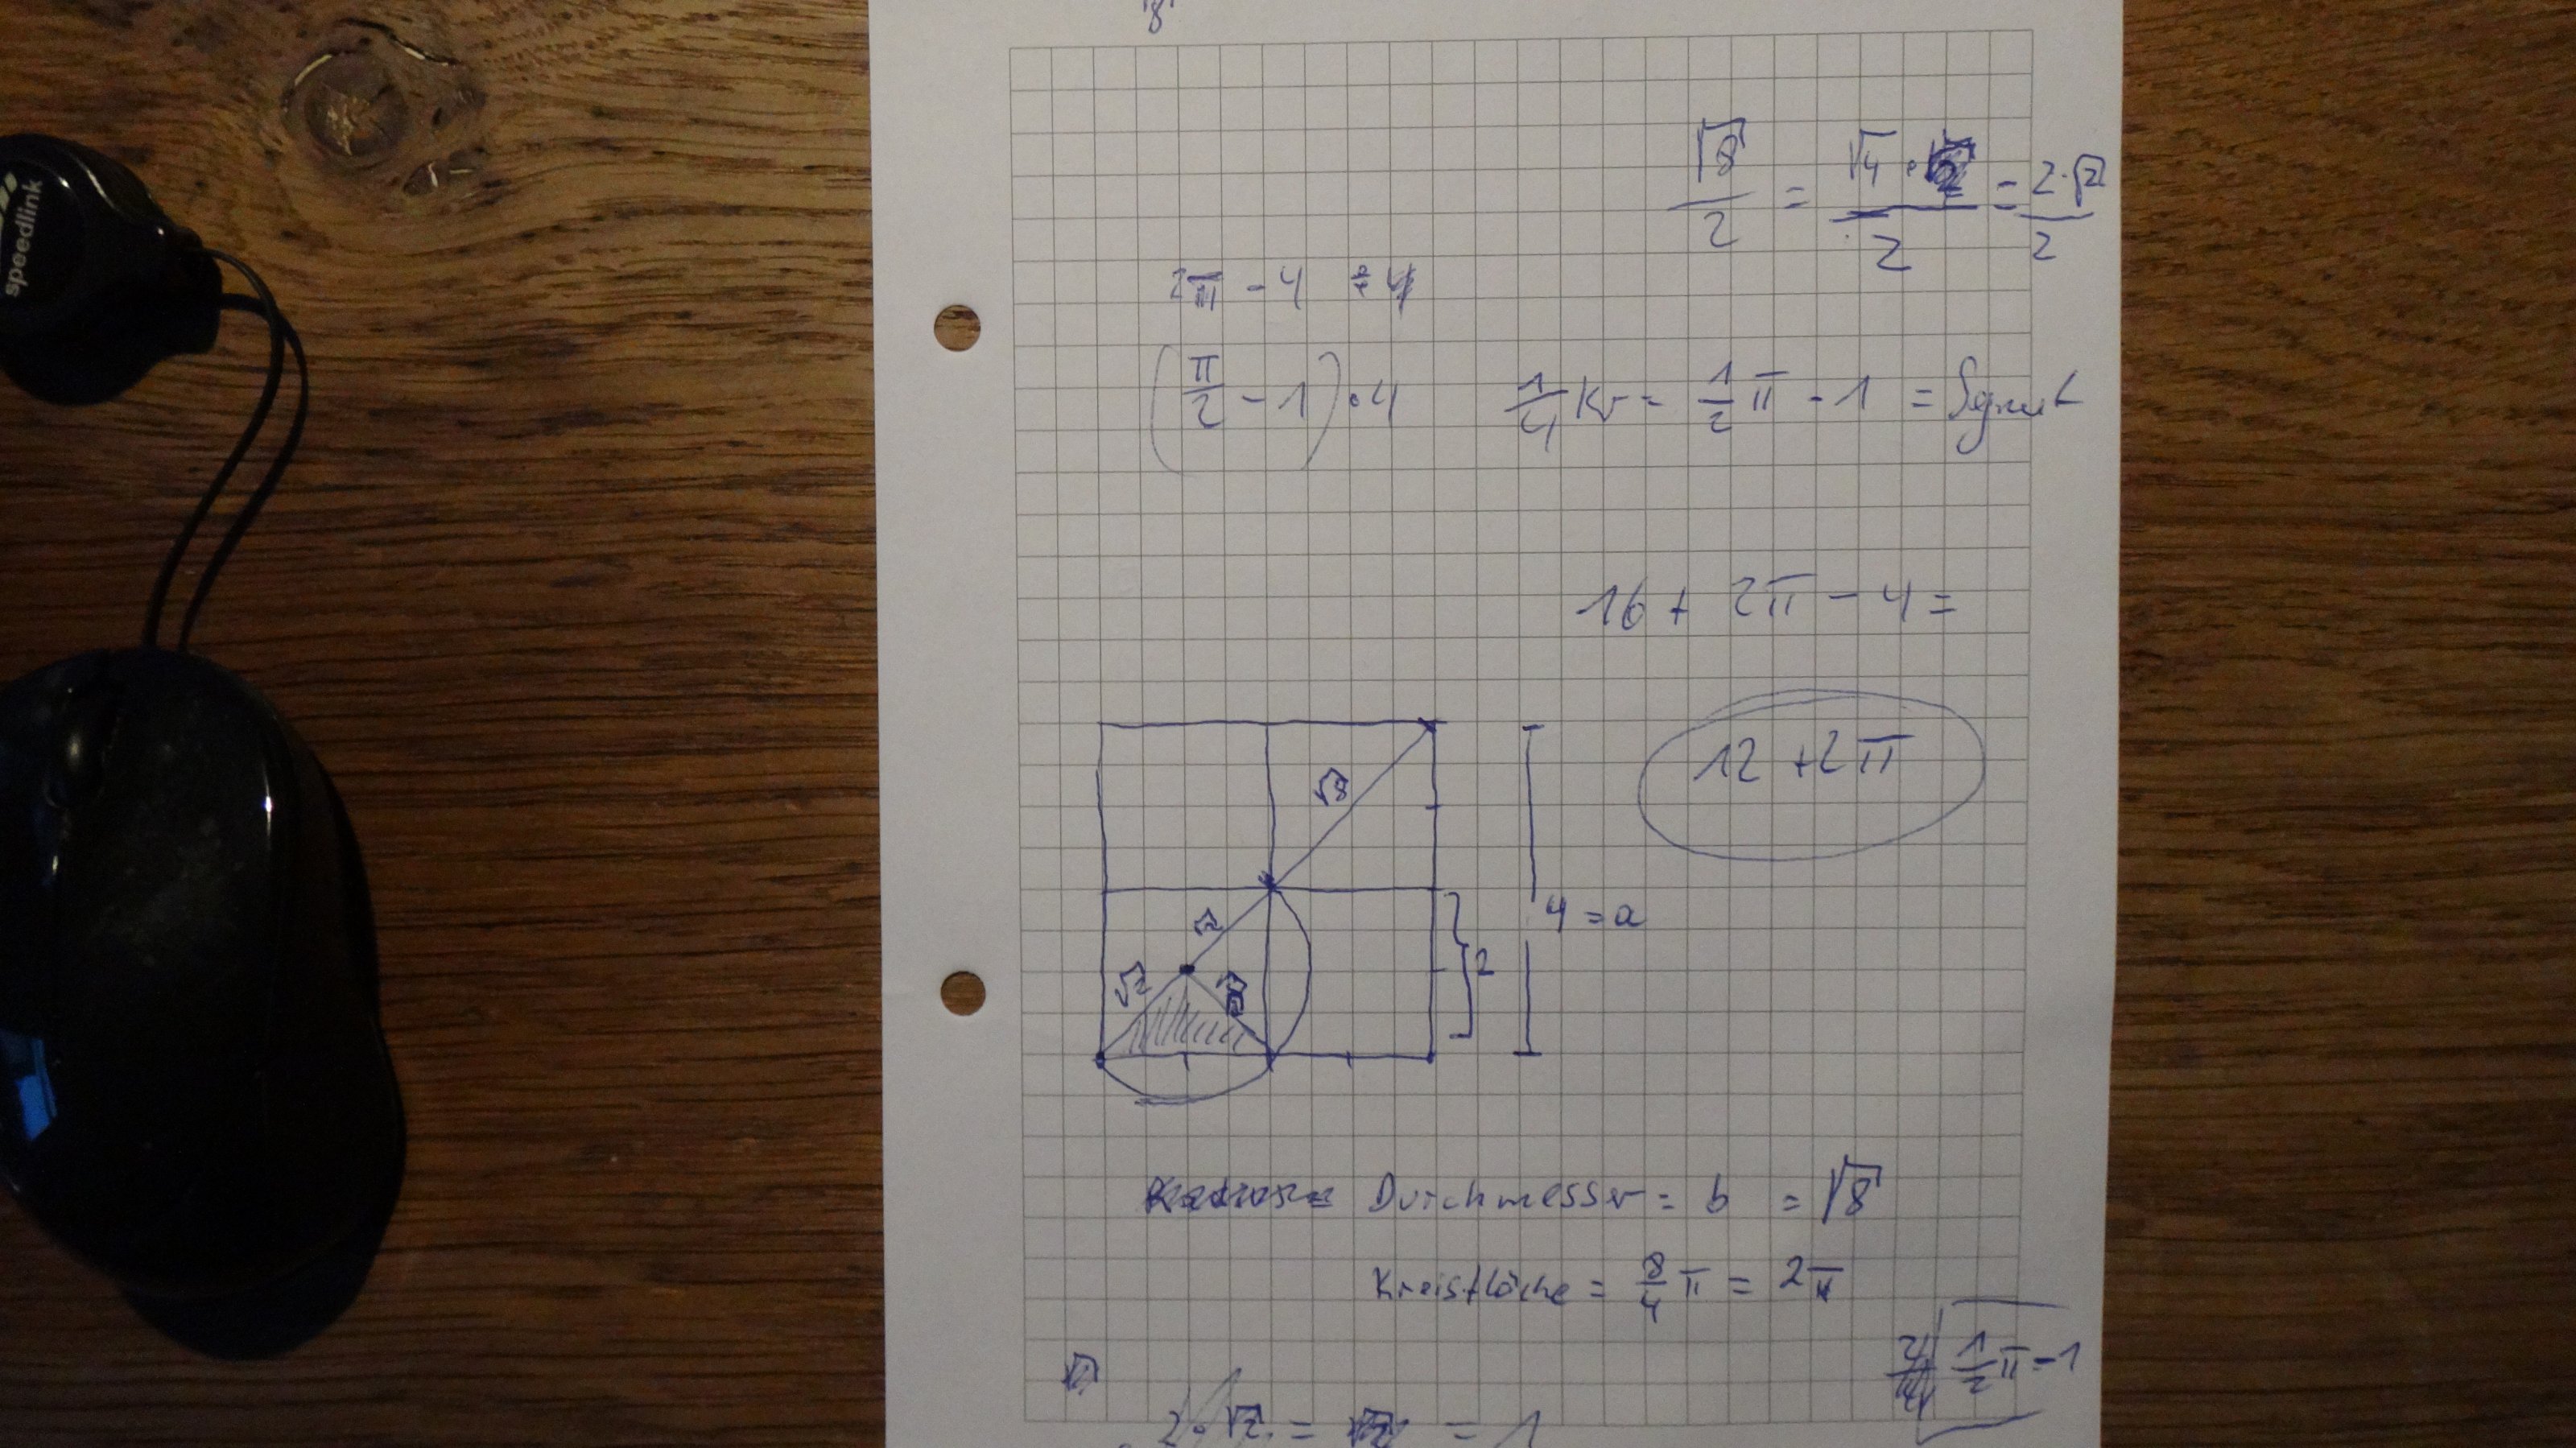 speedlink
8
√8/2 = √4 · √2/2 = 2·√2/2
2π - 4 ÷ 4
(π/2 - 1) · 4
1/4 Kr = 1/2 π - 1 = Sgmt
16 + 2π - 4 =
12 + 2π
√8
√2
4 = a
√2
2
Durchmesser = b = √8
Kreisfläche = 8/4 π = 2π
1/2 π - 1
2 · √2 = = 1